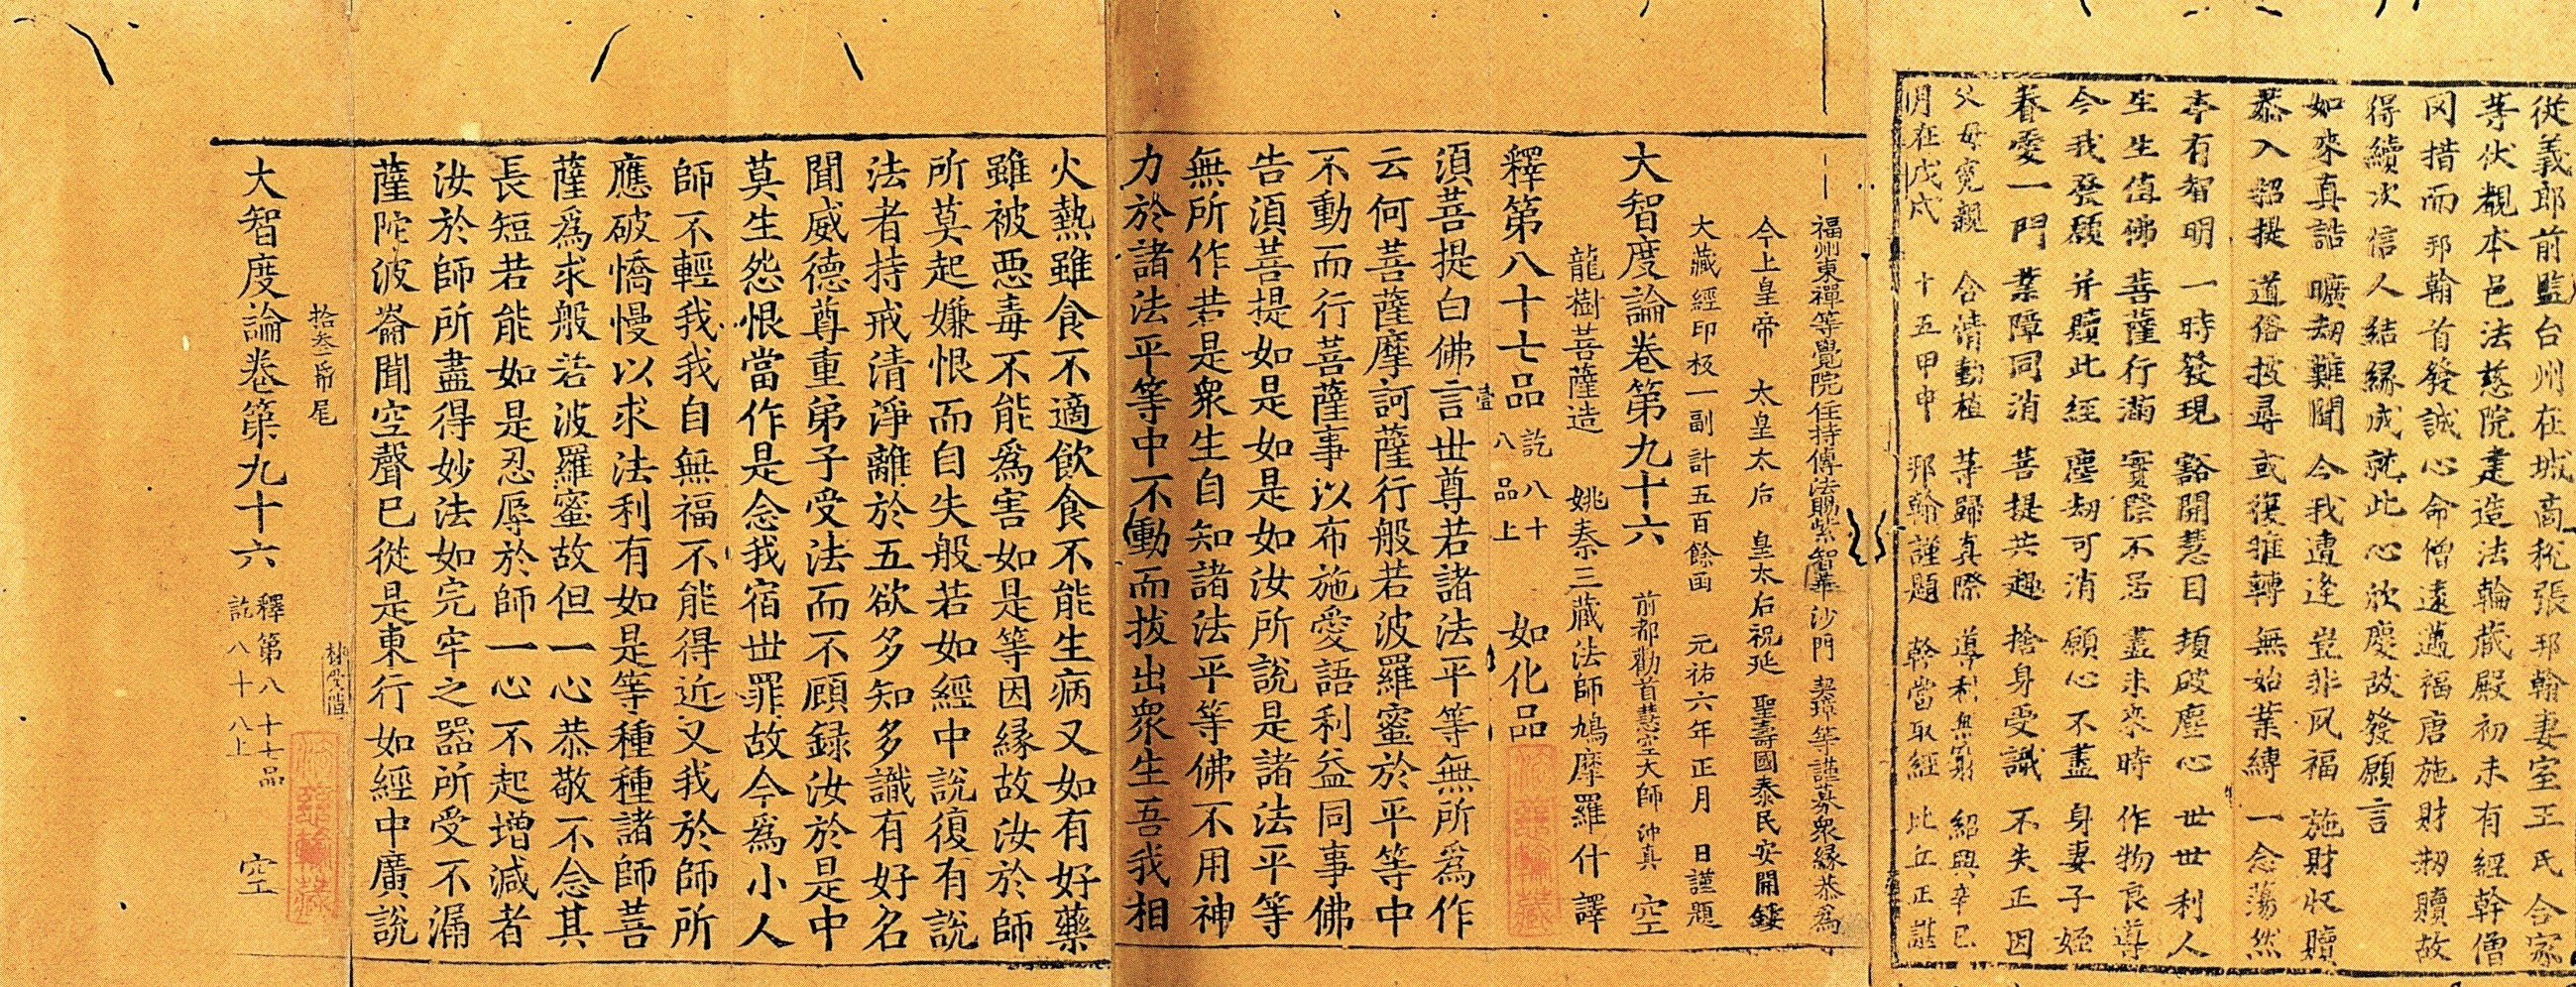 從義郎前監台州在城商稅張邦翰妻室王氏合家
等伏覩本邑法慈院建造法輪藏殿初未有經幹僧
罔措而邦翰首發誠心命僧遠邁福唐施財剏贖故
得續次信人結緣成就此心欣慶故發願言
如來真誥 曠劫難聞 今我遭逢 豈非夙福 施財收贖
恭入招提 道俗披尋 或復推轉 無始業縛 一念蕩然
夲有智明 一時發現 豁開慧目 頓破塵心 世世利人
生生值佛 菩薩行滿 實際不居 盡未來時 作物良導
今我發願 并贖此經 塵劫可消 願心不盡 身妻子姪
眷愛一門 業障同消 菩提共趣 捨身受識 不失正因
父母寃親 含情動植 等歸真際 導利無窮 紹興辛巳
月在戊戌 十五甲申 邦翰謹題 幹當取經 比丘正謹
福州東禪等覺院住持傳法賜紫智華 沙門 契璋等謹募衆緣恭爲
今上皇帝 太皇太后 皇太后祝延 聖壽國泰民安開鏤
大藏經印板一副計五百餘函 元祐六年正月 日謹題
大智度論卷第九十六 前都勸首慧空大師沖真 空
龍樹菩薩造 姚秦三藏法師鳩摩羅什譯
釋第八十七品訖八十八品上 如化品
壹
須菩提白佛言世尊若諸法平等無所爲作
云何菩薩摩訶薩行般若波羅蜜於平等中
不動而行菩薩事以布施愛語利益同事佛
告須菩提如是如是如汝所說是諸法平等
無所作若是衆生自知諸法平等佛不用神
力於諸法平等中不動而拔出衆生吾我相
火熱雖食不適飲食不能生病又如有好藥
雖被惡毒不能爲害如是等因緣故汝於師
所莫起嫌恨而自失般若如經中說復有說
法者持戒清淨離於五欲多知多識有好名
聞威德尊重弟子受法而不顧録汝於是中
莫生怨恨當作是念我宿世罪故今爲小人
師不輕我我自無福不能得近又我於師所
應破憍慢以求法利有如是等種種諸師菩
薩爲求般若波羅蜜故但一心恭敬不念其
長短若能如是忍辱於師一心不起增減者
汝於師所盡得妙法如完牢之器所受不漏
薩陀波崙聞空聲已從是東行如經中廣說
拾叁帋尾
大智度論卷第九十六 釋第八十七品訖八十八上 空